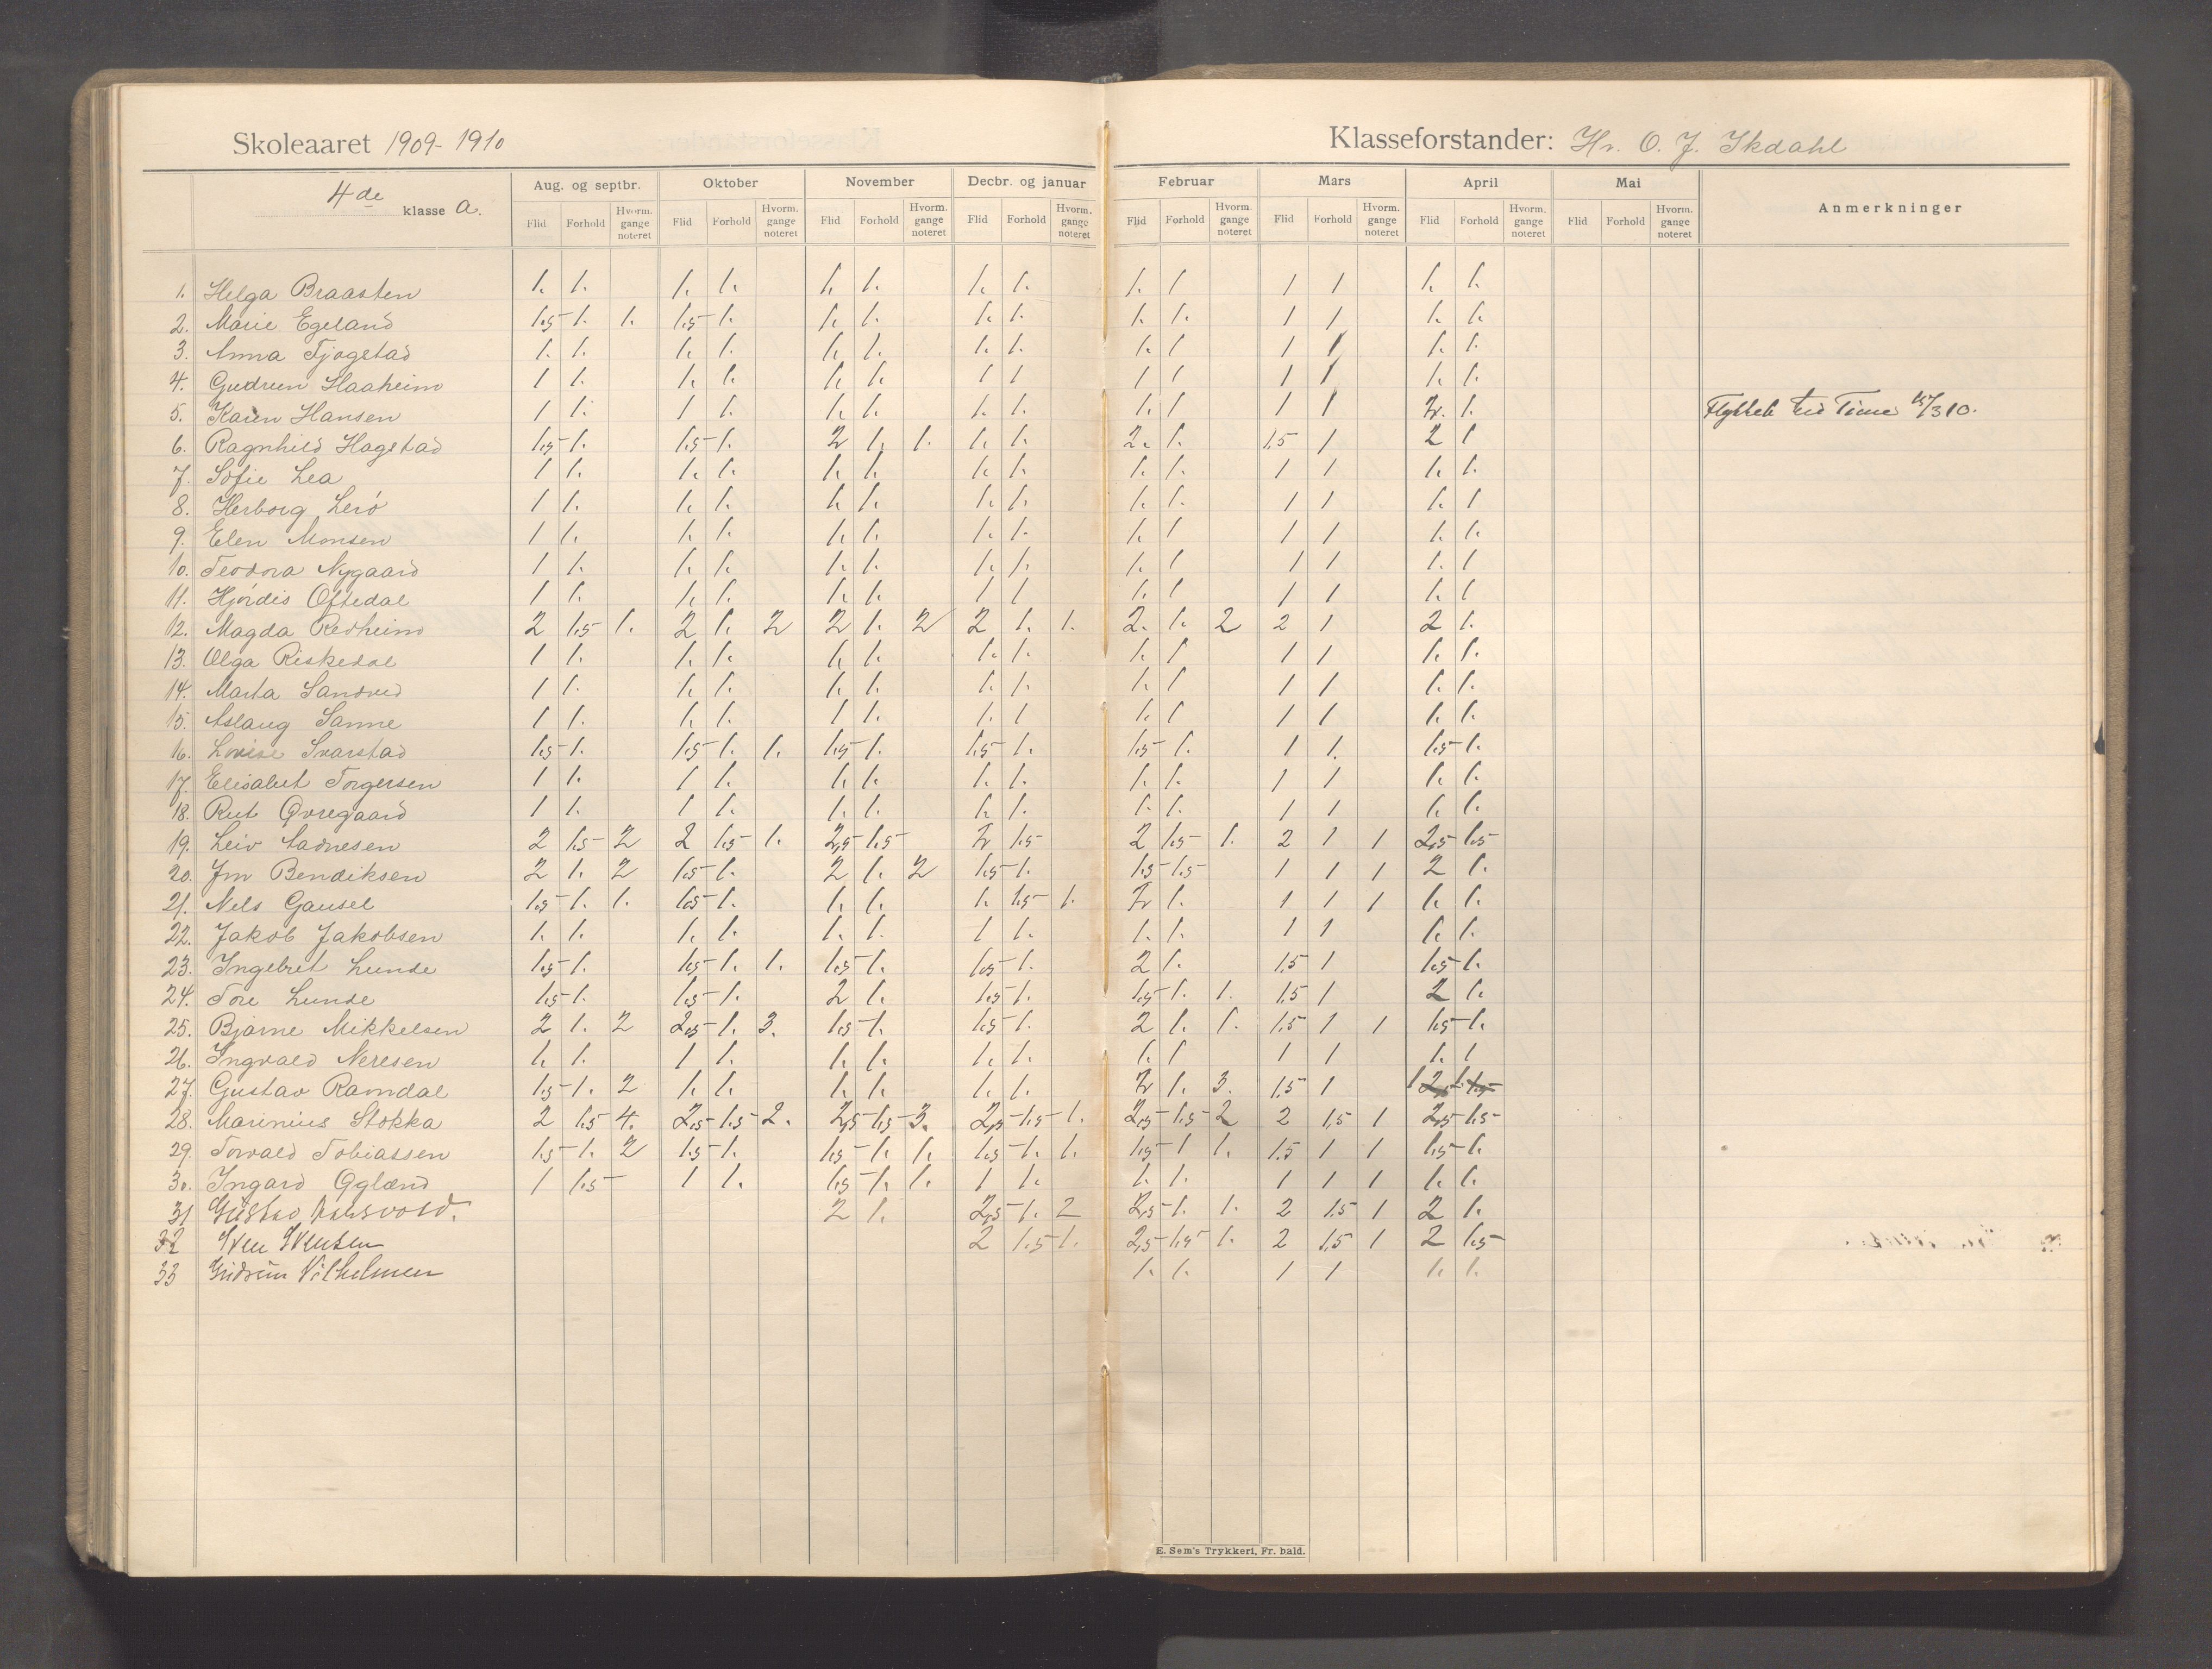 Skoleaaret 1909-1910
Klasseforstander: Hr. O. J. Ikdahl
4de klasse a.
Aug. og septbr. Oktober November Decbr. og januar Februar Mars April Mai Anmerkninger
Flid Forhold Hvorm. gange noteret Flid Forhold Hvorm. gange noteret Flid Forhold Hvorm. gange noteret Flid Forhold Hvorm. gange noteret Flid Forhold Hvorm. gange noteret Flid Forhold Hvorm. gange noteret Flid Forhold Hvorm. gange noteret Flid Forhold Hvorm. gange noteret
1. Helga Braasten 1. 1. 1. 1. 1. 1. 1. 1. 1. 1 1 1 1. 1.
2. Marie Egeland 1,5 1. 1. 1,5 1. 1. 1. 1. 1. 1. 1. 1 1 1. 1.
3. Anna Tjøgstad 1. 1. 1. 1. 1. 1. 1. 1. 1. 1 1 1 1. 1.
4. Gudrun Haaheim 1 1. 1. 1. 1. 1. 1 1 1 1 1 1 1. 1.
5. Karen Hansen 1 1. 1 1. 1. 1. 1. 1. 1. 1 1 1 2. 1. Flyttet til Time 15/3 10.
6. Ragnhild Hagstad 1,5 1. 1,5 1. 2 1. 1. 1. 1. 2. 1. 1,5 1 2 1
7. Sofie Lea 1 1. 1. 1. 1. 1. 1. 1. 1. 1. 1 1 1. 1.
8. Herborg Lerö 1 1. 1. 1. 1. 1. 1. 1. 1. 1. 1 1 1. 1
9. Elen Monsen 1 1. 1. 1. 1. 1. 1. 1. 1. 1 1 1 1. 1.
10. Teodora Nygaard 1 1. 1. 1. 1. 1. 1. 1. 1. 1 1 1 1. 1
11. Hjördis Oftedal 1 1. 1. 1. 1. 1. 1 1 1. 1 1 1 1. 1
12. Magda Redheim 2 1.5 1. 2 1. 2 2 1. 2 2 1. 1. 2. 1. 2 2 1 2 1.
13. Olga Riskedal 1 1. 1. 1. 1. 1. 1. 1. 1. 1 1 1 1. 1.
14. Marta Sandved 1 1. 1. 1. 1. 1. 1. 1. 1. 1 1 1 1. 1.
15. Aslaug Sanne 1 1. 1. 1. 1 1. 1. 1 1. 1 1 1 1. 1.
16. Lovise Svarstad 1,5 1. 1,5 1. 1. 1,5 1. 1,5 1. 1,5 1. 1 1. 1,5 1.
17. Elisabet Torgersen 1 1. 1 1. 1. 1. 1. 1. 1. 1. 1 1 1. 1.
18. Rut Øvregaard 1 1. 1 1. 1. 1. 1. 1. 1. 1. 1 1 1. 1.
19. Leiv Aadnesen 2 1.5 2 2 1,5 1. 2,5 1,5 2 1,5 2 1,5 1. 2 1 1 2,5 1,5
20. Jon Bendiksen 2 1. 2 1,5 1. 2 1. 2 1,5 1. 1,5 1,5 1 1 1 2 1.
21. Nels Gausel 1,5 1. 1. 1,5 1. 1. 1. 1. 1,5 1. 2 1. 1 1 1 1. 1.
22. Jakob Jakobsen 1. 1. 1. 1. 1. 1. 1 1. 1. 1. 1 1 1. 1.
23. Ingebret Lunde 1,5 1. 1,5 1. 1. 1,5 1. 1,5 1. 2 1. 1,5 1 1,5 1.
24. Tore Lunde 1,5 1. 1,5 1. 2 1. 1,5 1. 1,5 1. 1. 1,5 1 2 1.
25. Bjarne Mikkelsen 2 1. 2 2,5 1. 3. 1,5 1. 1,5 1. 2 1. 1. 1,5 1 1 1,5 1.
26. Ingvald Neresen 1. 1. 1 1. 1. 1. 1. 1. 1. 1 1 1 1. 1
27. Gustav Ramdal 1,5 1. 2 1. 1. 1. 1. 1. 1. 2 1. 3. 1,5 1 1 1.
28. Marinius Stokka 2 1.5 4. 2,5 1,5 2. 2,5 1,5 3. 2,5 1,5 1. 2,5 1,5 2 2 1,5 1 2,5 1,5
29. Torvald Tobiassen 1,5 1. 2 1,5 1. 1,5 1. 1. 1,5 1. 1. 1,5 1 1. 1,5 1 1 1,5 1.
30. Ingard Øglænd 1 1.5 1 1. 1,5 1. 1. 1 1. 1. 1. 1 1 1 1. 1.
31 Gustav 2 1. 2,5 1. 2 2,5 1. 1. 2 1.5 1 2 1.
32 Sven Svensen 2 1.5 1. 2,5 1,5 1. 2 1,5 1 2 1,5
33 Gudrun Vilhelmsen 1. 1. 1 1 1. 1.
E. Sem's Trykkeri, Fr. hald.